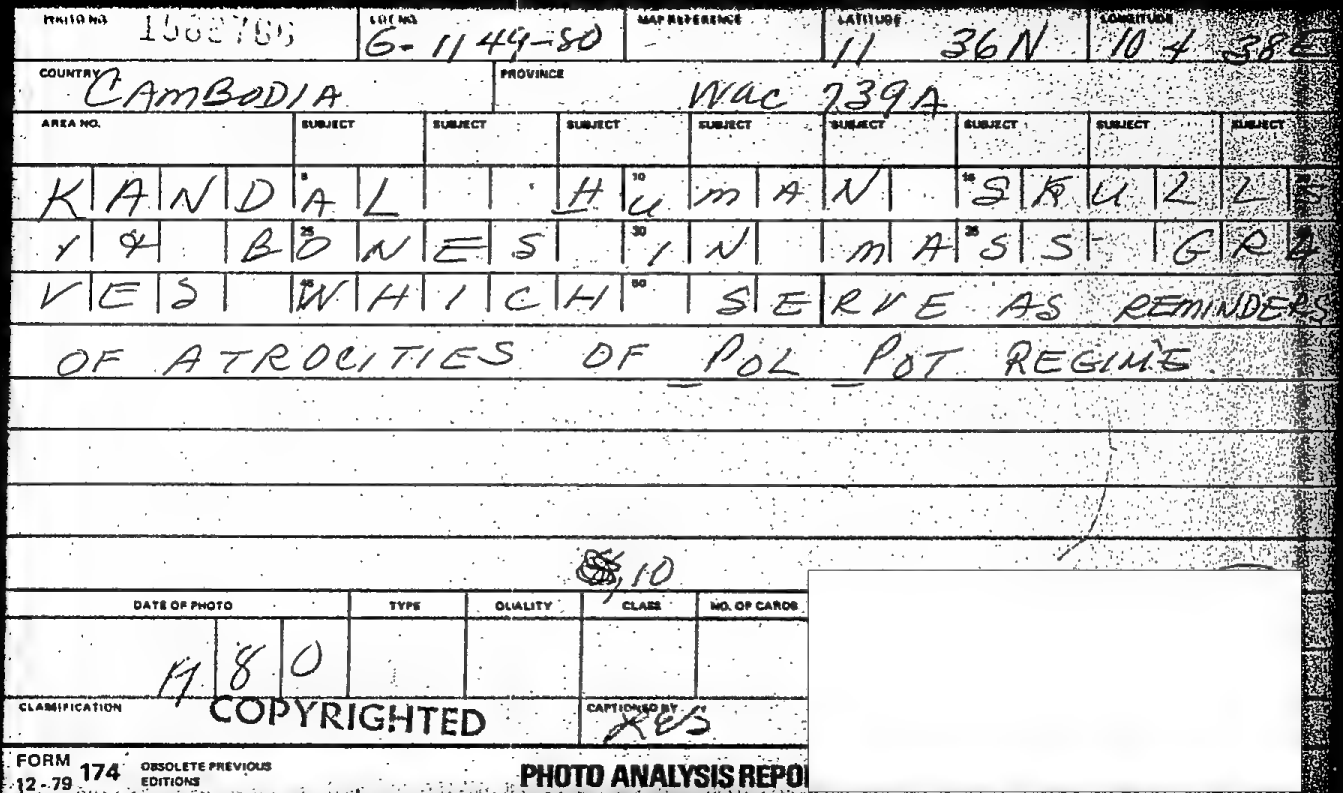 PHOTO NO. LOT NO. MAP REFERENCE LATITUDE LONGITUDE
6-1149-80 11 36N 104 38E
COUNTRY PROVINCE
CAMBODIA WAC 739A
AREA NO. SUBJECT SUBJECT SUBJECT SUBJECT SUBJECT SUBJECT SUBJECT SUBJECT
KANDAL HUMAN SKULLS
& BONES IN MASS GRA
VES WHICH SERVE AS REMINDERS
OF ATROCITIES OF POL POT REGIME.
10
DATE OF PHOTO TYPE QUALITY CLASS NO. OF CARDS
80
CLASSIFICATION COPYRIGHTED CAPTIONED BY
FORM 174 OBSOLETE PREVIOUS
12-79 EDITIONS
PHOTO ANALYSIS REPO